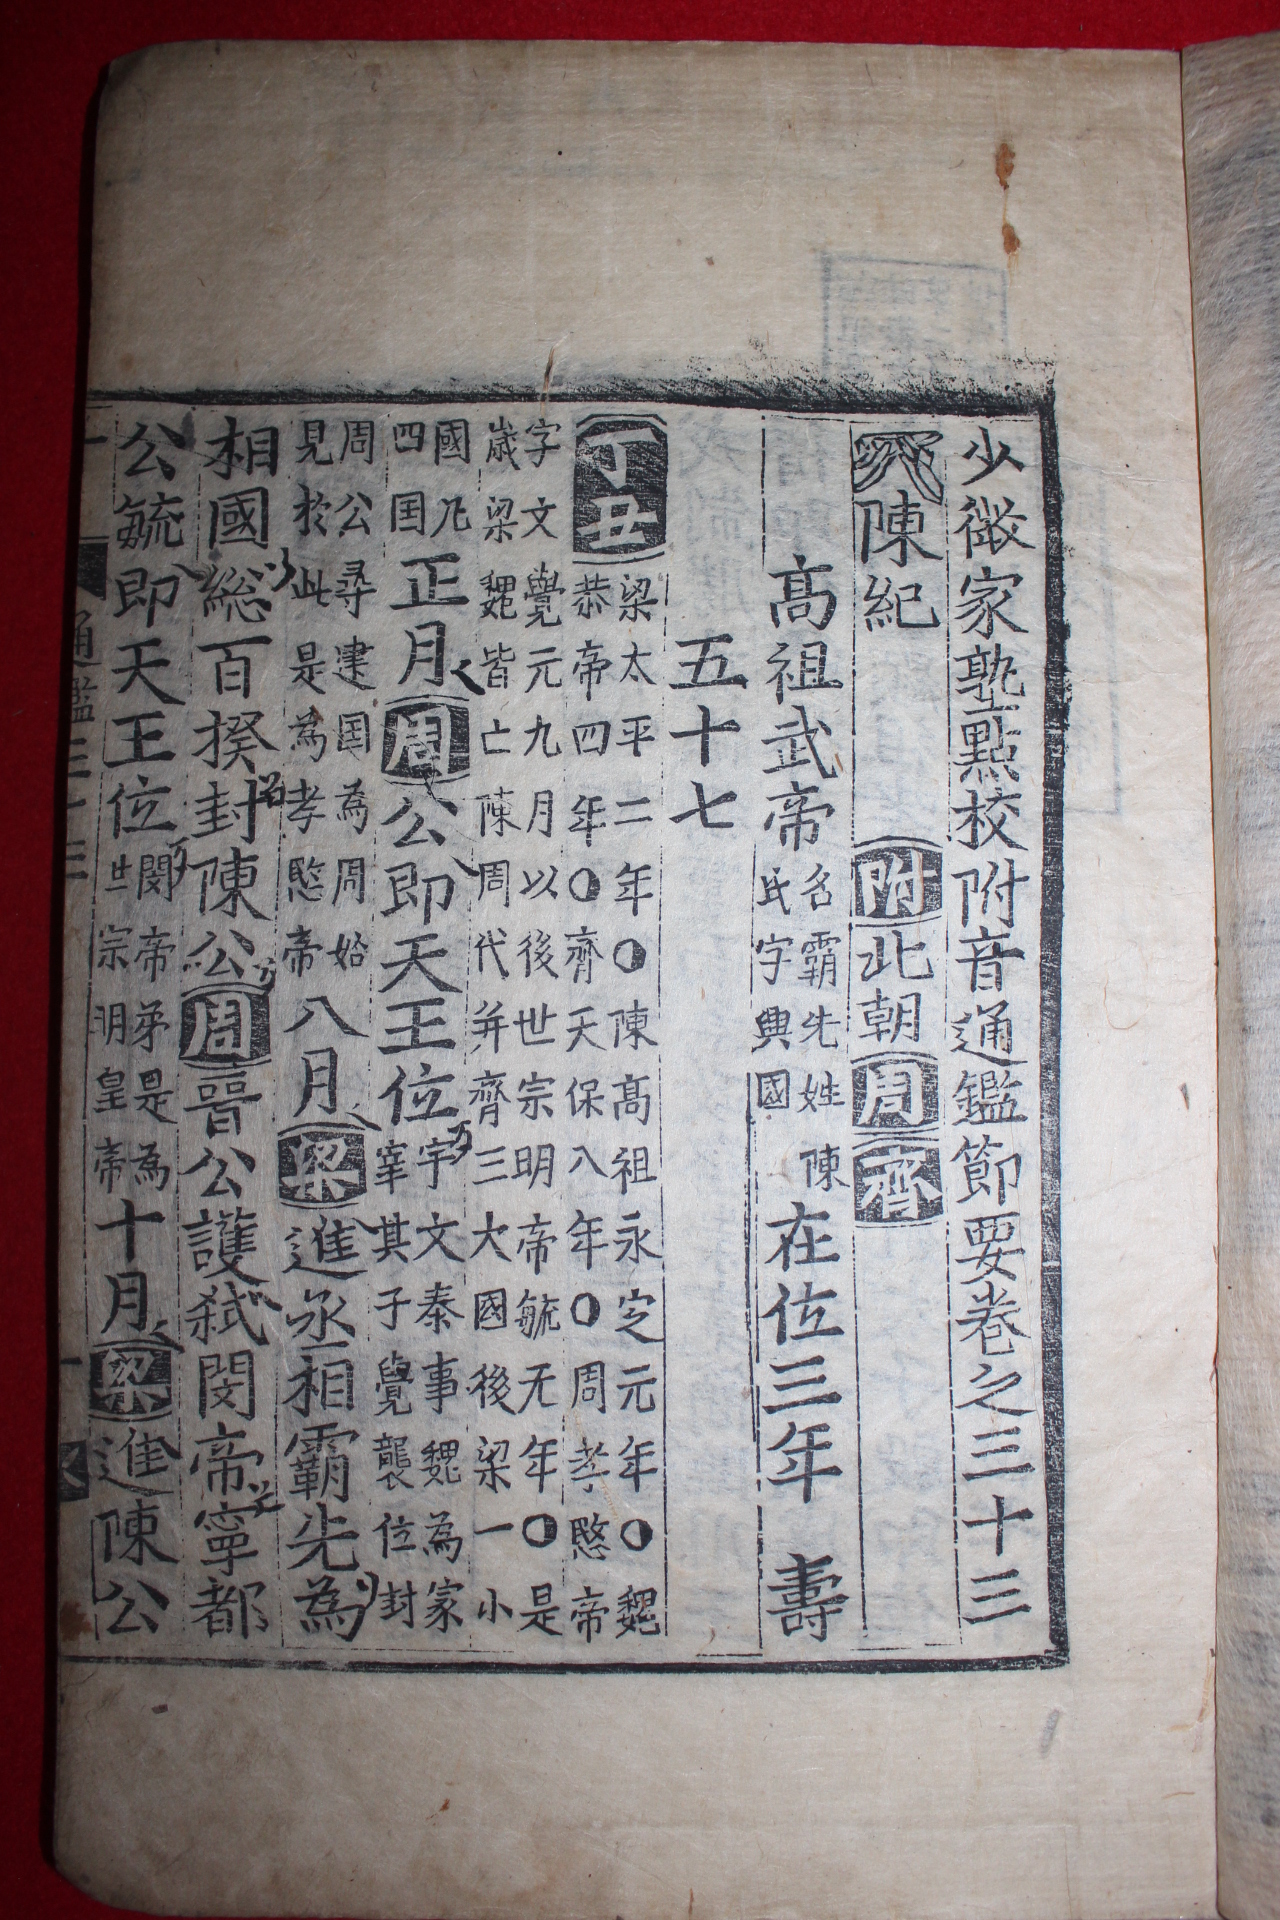 少微家塾點校附音通鑑節要卷之三十三
陳紀 附北朝周齊
高祖武帝 名霸先姓陳 氏字興國 在位三年 壽
五十七
丁丑 梁太平二年○陳高祖永定元年○魏 恭帝四年○齊天保八年○周孝愍帝
宇文覺元九月以後世宗明帝毓元年○是 歲梁魏皆亡陳周代并齊三大國後梁一小
國凡 四国 正月周公即天王位 宇文泰事魏為冢 宰其子覺襲位封
周公尋建国為周始 見於此是為孝愍帝 八月梁進丞相霸先為
相國総百揆封陳公周晉公護弑閔帝寧都
公毓即天王位 閔帝弟是為 世宗明皇帝 十月梁進陳公
通鑑三十三 一